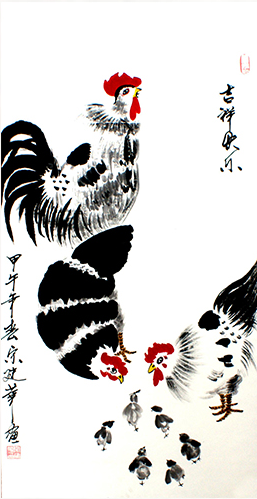 吉祥快乐
甲午年春乐建华画